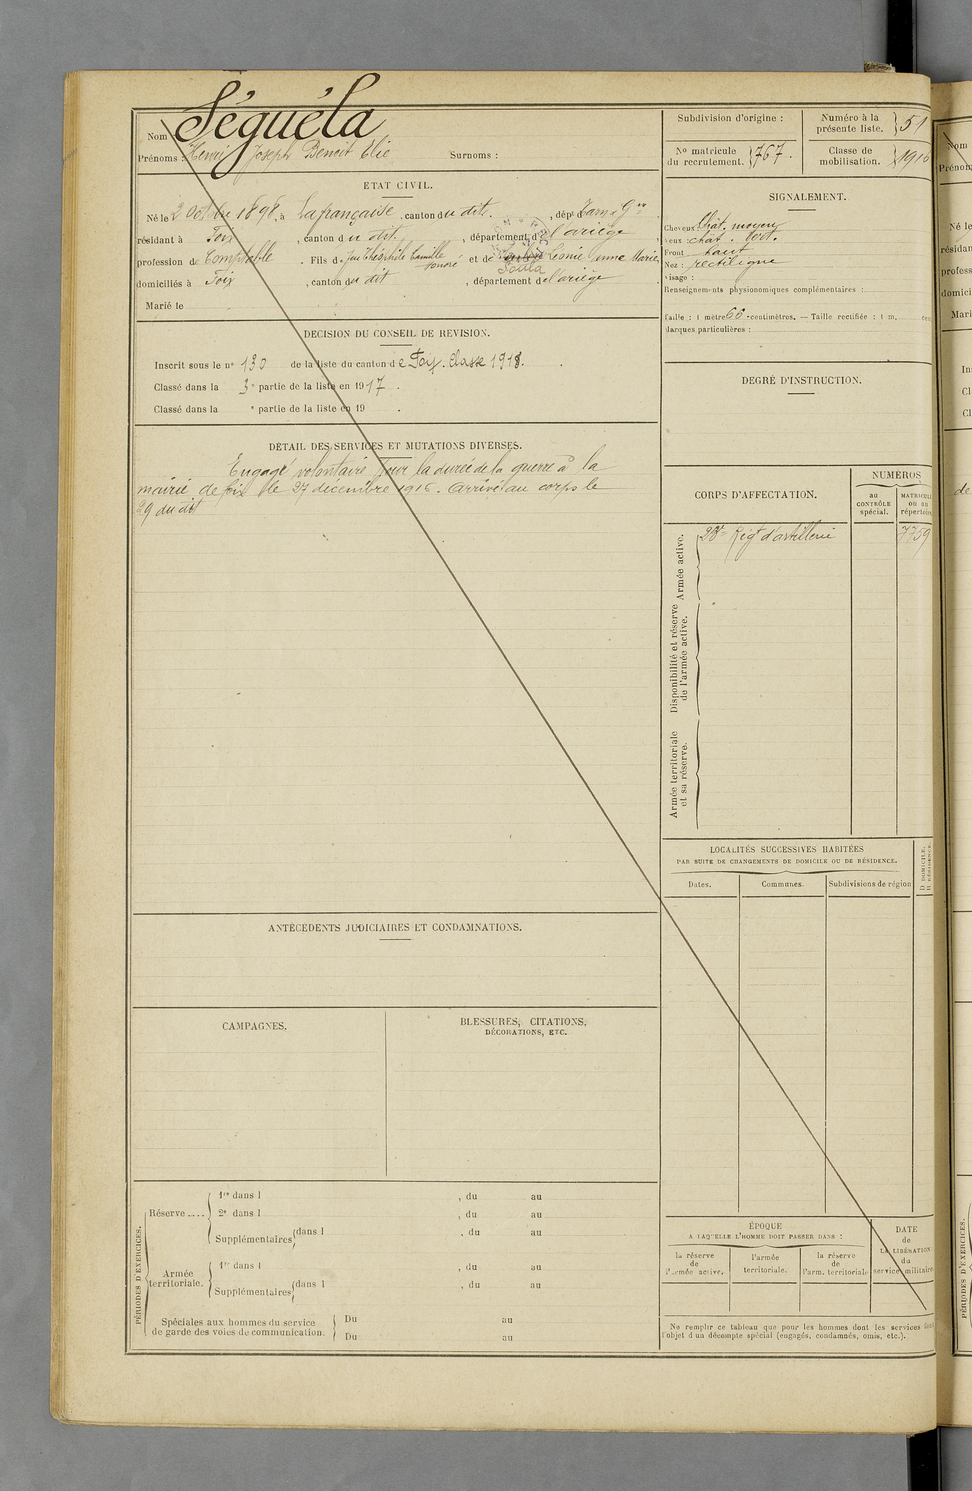 Nom : Séguéla
Prénoms : Henri Joseph Benoit Elie Surnoms :
ETAT CIVIL.
Né le 2 Octobre 1898, à Lafrançaise, canton du dit, dépt Tarn & Gne
résidant à Foix, canton du dit, département de l'ariège,
profession de Comptable. Fils de feu Théophile Camille
honoré et de Léonie anne Marie
Soula
domiciliés à Foix, canton du dit, département de l'ariège
Marié le
DÉCISION DU CONSEIL DE REVISION.
Inscrit sous le no 130 de la liste du canton de Foix. Classe 1918.
Classé dans la 3e partie de la liste en 1917.
Classé dans la e partie de la liste en 19 .
DÉTAIL DES SERVICES ET MUTATIONS DIVERSES.
Engagé volontaire pour la durée de la guerre à la
mairie de foix le 27 décembre 1916. Arrivé au corps le
29 du dit
ANTÉCÉDENTS JUDICIAIRES ET CONDAMNATIONS.
CAMPAGNES.
BLESSURES, CITATIONS,
DÉCORATIONS, ETC.
PÉRIODES D'EXERCICES.
Réserve ....
1re dans l , du au
2e dans l , du au
Supplémentaires dans l , du au
Armée
territoriale.
1re dans l , du au
Supplémentaires dans l , du au
Spéciales aux hommes du service
de garde des voies de communication.
Du au
Du au
Subdivision d'origine :
Numéro à la
présente liste. 51
No matricule
du recrutement. 767.
Classe de
mobilisation. 1916
SIGNALEMENT.
Cheveux Chât. moyen
Yeux chât. vert.
Front haut
Nez : rectiligne
Visage :
Renseignements physionomiques complémentaires :
Taille : 1 mètre 66 centimètres. — Taille rectifiée : 1 m. cen
Marques particulières :
DEGRÉ D'INSTRUCTION.
CORPS D'AFFECTATION.
NUMÉROS
au
CONTRÔLE
spécial.
MATRICULE
ou au
répertoire
Armée active.
23e Régt d'artillerie 7759
Disponibilité et réserve
de l'armée active.
Armée territoriale
et sa réserve.
LOCALITÉS SUCCESSIVES HABITÉES
PAR SUITE DE CHANGEMENTS DE DOMICILE OU DE RÉSIDENCE.
Dates. Communes. Subdivisions de région
D DOMICILE.
R RÉSIDENCE.
ÉPOQUE
A LAQUELLE L'HOMME DOIT PASSER DANS :
la réserve
de
l'armée active.
l'armée
territoriale.
la réserve
de
l'arm. territoriale
DATE
de
LA LIBÉRATION
du
service militaire
Ne remplir ce tableau que pour les hommes dont les services font
l'objet d'un décompte spécial (engagés, condamnés, omis, etc.).